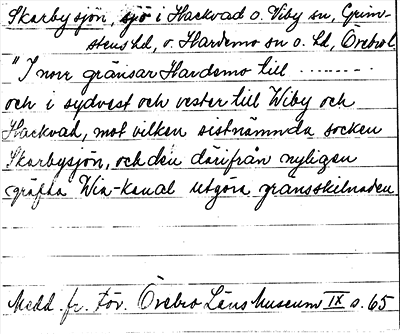 Skarbysjön, sjö i Hackvad o. Viby sn, Grim-
stens hd, o. Hardemo sn o. hd, Örebro l.
"I norr gränsar Hardemo till ---------
och i sydvest och vester till Wiby och
Hackvad, mot vilken sistnämnda socken
Skarbysjön, och den därifrån nyligen
gräfda Wia-kanal utgöra gränsskilnaden
Medd. fr. För. Örebro Läns Museum IX s. 65